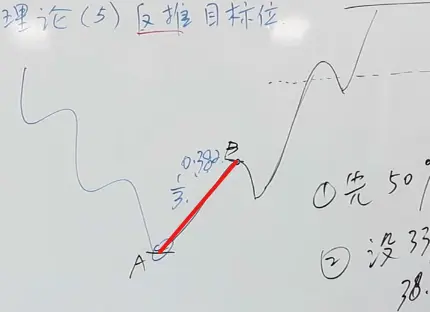 理论(5)反推目标位
B
0.382
1/3
A
①先50%
②设33
38.